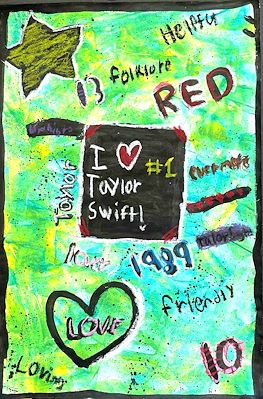 Helpful
folklore
13
RED
I ♥
#1
Taylor
Swift!
evermore
1989
friendly
LOVE
10
Loving